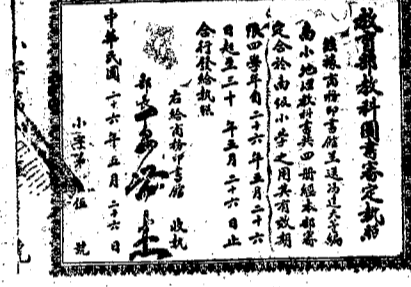 教育部教科圖書審定執照
茲據商務印書館呈送馮達夫等編
高小地理教科書共四冊經本部審
定合於高級小學之用其有效期
限四學年自二十六年五月二十六
日起至三十年五月二十六日止
合行發給執照
右給商務印書館 收執
部長王
中華民國二十六年五月二十六日
小字第 伍 號